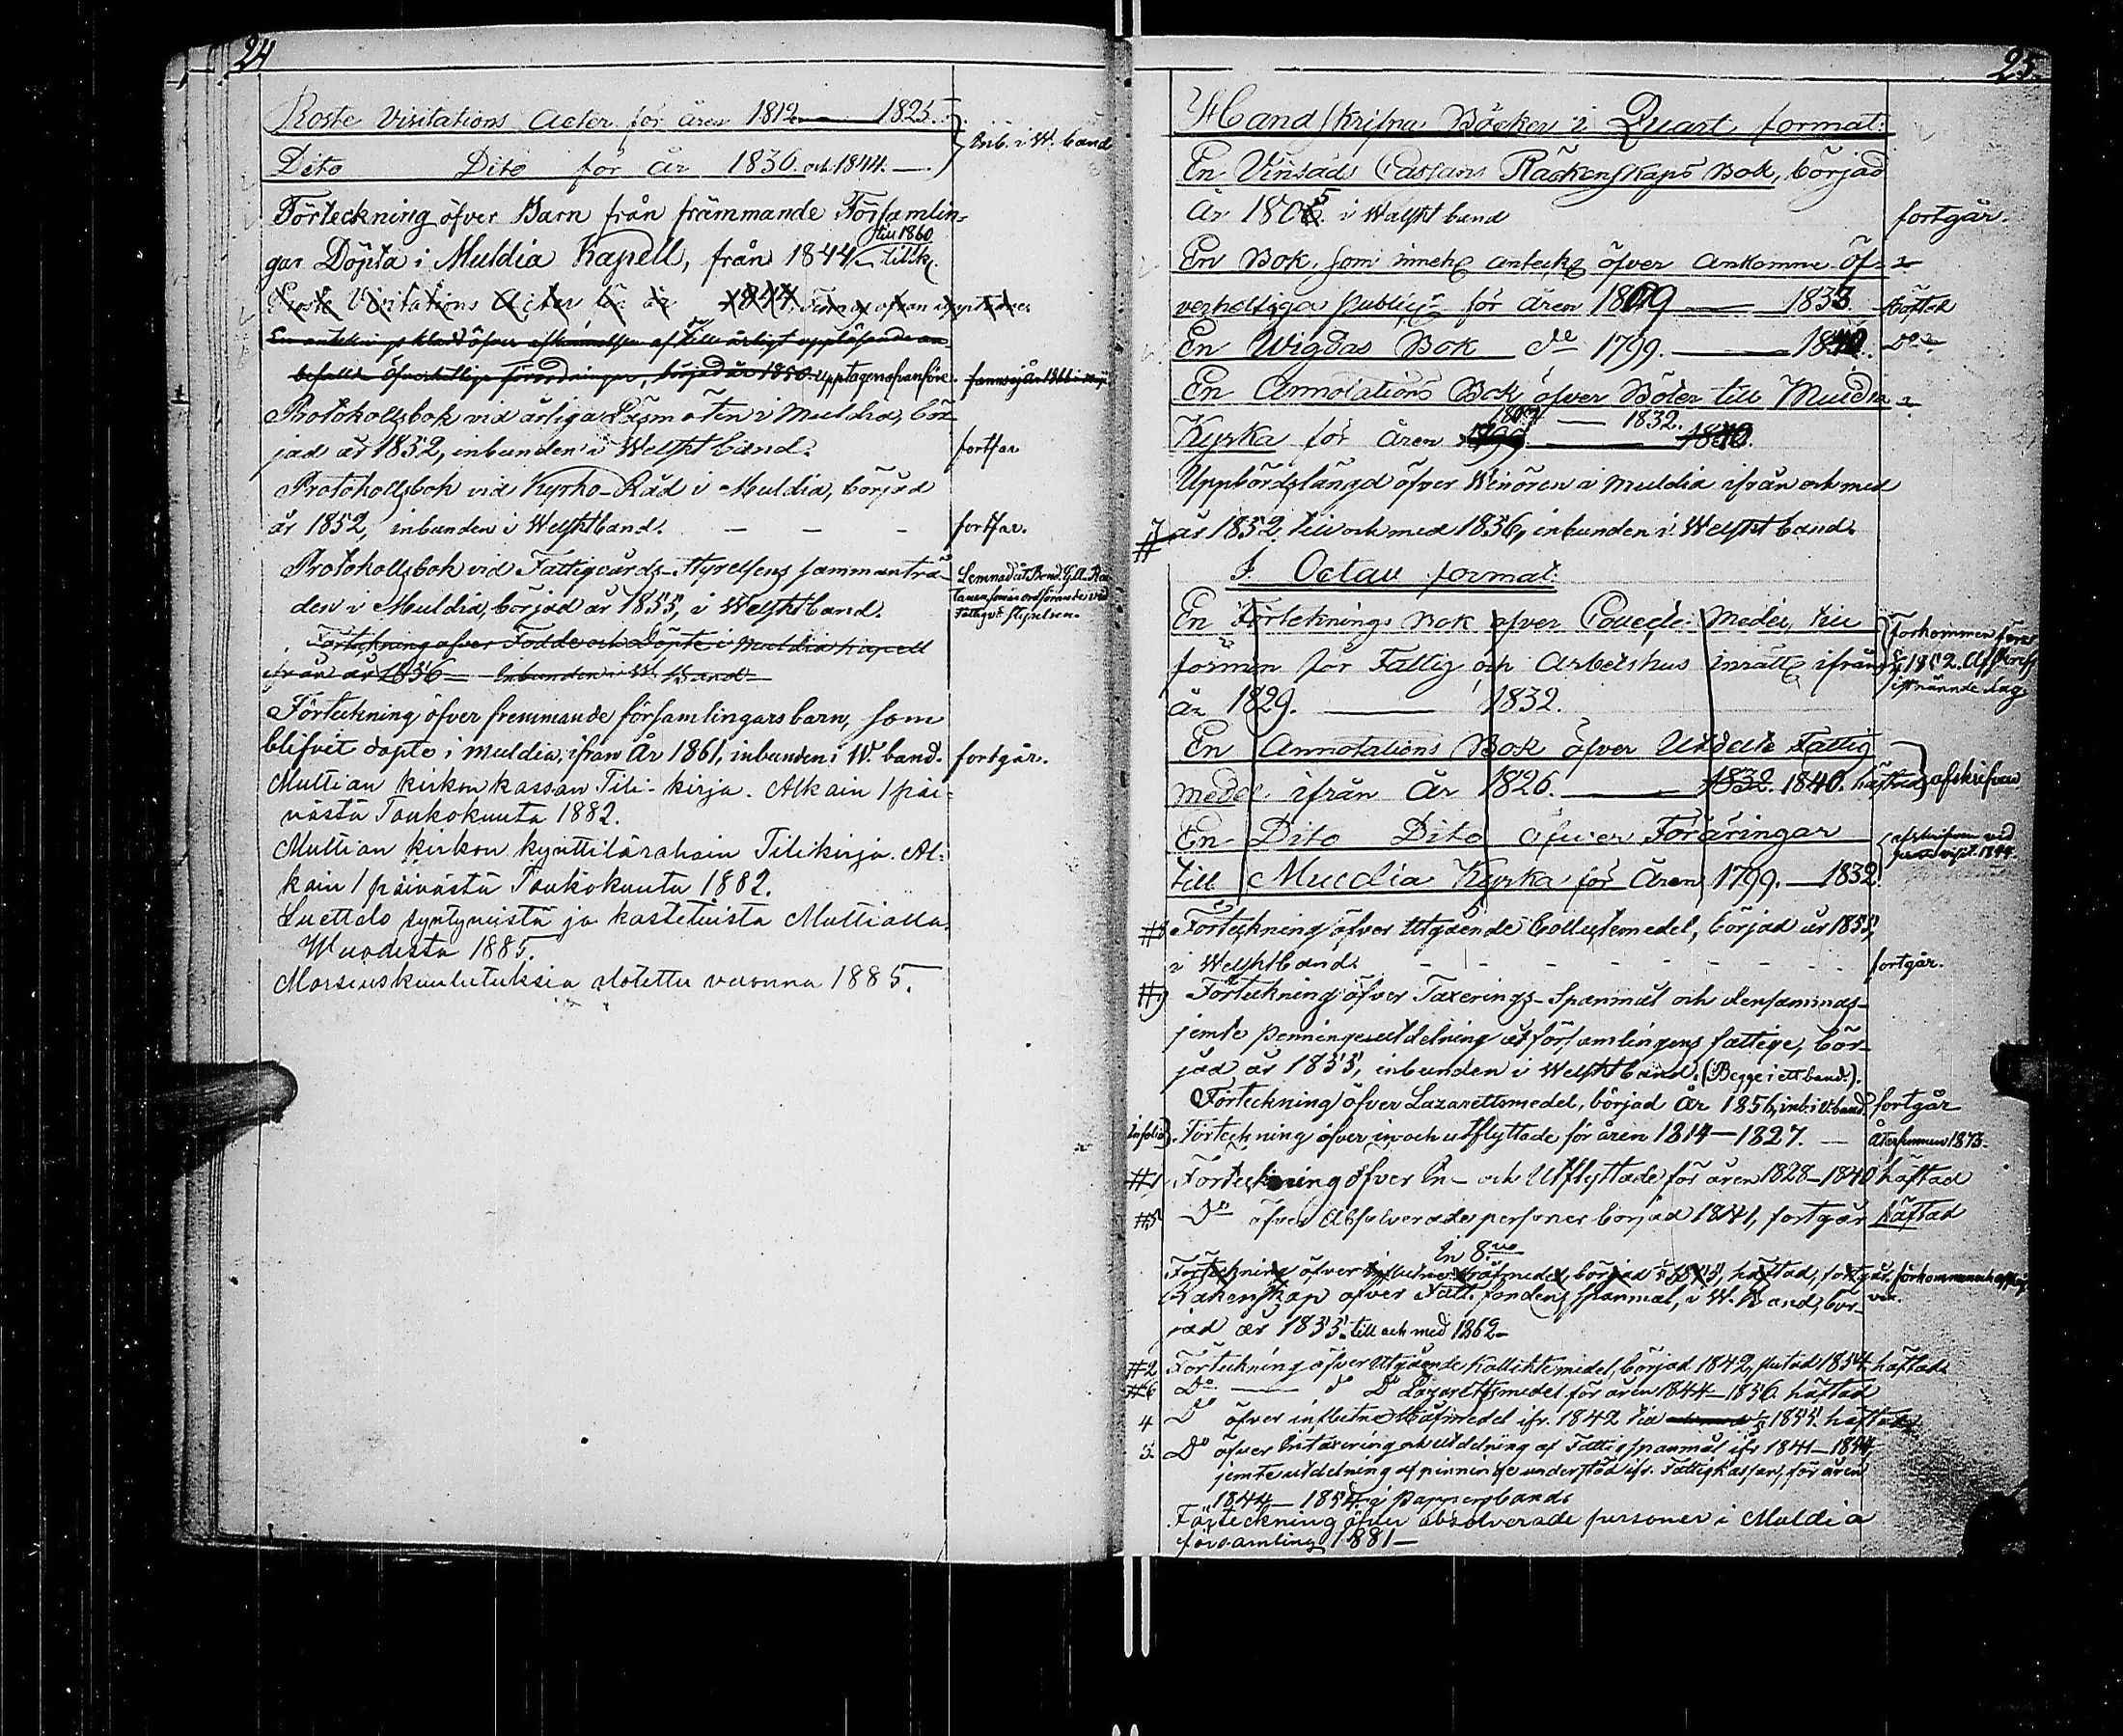 24
Proste Visitations Acter för åren 1812 — 1825.
Dito Dito för år 1836 och 1844. —
Inb. i W. band
Förteckning öfver Barn från främmande Församlin-
gar Döpta i Muldia Kapell, från 1844 till 1860
Proste Visitations Acter för år 1844,
En antecknings kladd öfver
befallde öfverhetliga förordningar, börjad år 1850. upptagen ofvanföre.
Protokollsbok vid årliga Läsmöten i Muldia, bör-
jad år 1852, inbunden i Welskt band. fortfar
Protokollsbok vid Kyrko-Råd i Muldia, börjad
år 1852, inbunden i Welskt band. — — — fortfar.
Protokollsbok vid Fattigvårds-Styrelsens sammanträ-
den i Muldia, börjad år 1855, i Welskt band.
Förteckning öfver Födde och Döpte i Muldia Kapell
ifrån år 1836 — Inbunden i W. Band
Förteckning öfver fremmande församlingars barn, som
blifvit döpte i Muldia, ifrån År 1861, inbunden i W. band. fortgår.
Multian kirkon kassan Tili-kirja. Alkain 1 päi-
västä Toukokuuta 1882.
Multian kirkon kynttilärahain Tilikirja. Al-
kain 1 päivästä Toukokuuta 1882.
Luettelo syntyneistä ja kastetuista Multialla
Wuodesta 1885.
Morsiuskuulutuksia alotettu vuonna 1885.
25.
Handskrifna Böcker i Quart format:
En Vinsäds Cassans Räckenskaps Bok, börjad
år 1805. i Welskt band fortgår.
En Bok, som inneh. anteckn. öfver ankomne öf-
verhetliga public. för åren 1809 — 1833. häftad
En Wigdas Bok do 1799. — 1840. Do
En Annotations Bok öfver Böter till Muldia
1807 — 1832.
Kyrka för åren 1799 — 1840.
Uppbördslängd öfver Winören i Muldia ifrån och med
#7 år 1832 till och med 1836, inbunden i Welskt band.
I Octav format:
En Förtecknings Bok öfver Collecte Medel, till
för Fattig och Arbetshus inrättn. ifrån
år 1829. — 1832.
En Annotations Bok öfver Utdelte Fattig
medel ifrån år 1826. — 1832. 1840. häftad afskrifven
En Dito Dito öfver Föräringar
till Muldia Kyrka för åren 1799. — 1832.
#3 Förteckning öfver Utgående Collectemedel, börjad år 1855,
i Welskt band. fortgår.
Förteckning öfver Taxerings-Spanmål och densammas
jemte penninge utdelning åt församlingens fattige, bör-
jad år 1855, inbunden i Welskt band. (Begge i ett band.).
Förteckning öfver Lazarettsmedel, börjad År 1856, inb. i W. band. fortgår
In folio. Förteckning öfver in och utflyttade för åren 1814—1827. — Återfunnen 1873.
#1 Förteckning öfver In- och Utflyttade för åren 1828—1840 häftad
#5 Do öfver Absolverade personer börjad 1841, fortgår häftad
In 8vo
Förteckning öfver influtne Strafmedel, börjad år 1855, häftad, fortgår.
Räkenskap öfver Fatt. fondens spanmål, i W. Band, bör-
jad år 1855. till och med 1862—
#2 Förteckning öfver Utgående Kollektemedel, börjad 1842, slutad 1854 häftad
#6 Do — do Do Lazarettsmedel för åren 1844—1856. häftad
4 Do öfver influtne Strafmedel ifr. 1842 till 1855. häftad
3. Do öfver Intaxering och utdelning af Fattig spanmål ifr 1841—1854,
jemte utdelning af penninge understöd ifr. Fattigkassan, för åren
1844—1854. i Pappersband.
Förteckning öfver absolverade personer i Muldia
församling 1881—